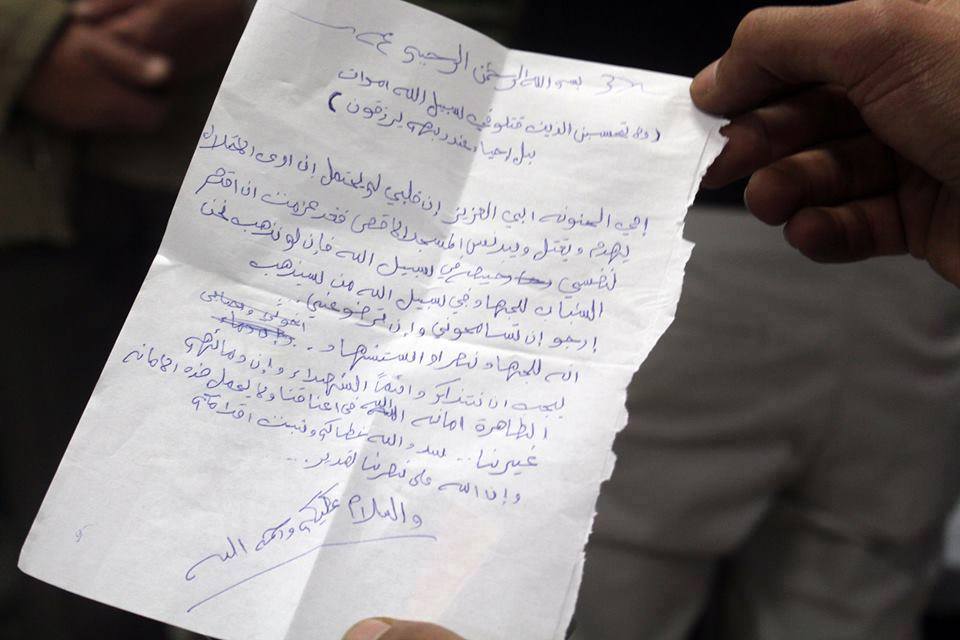 بسم الله الرحمن الرحيم
(ولا تحسبن الذين قتلو في سبيل الله اموات
بل احياء عند ربهم يرزقون)
امي الحنونه ابي العزيز إن قلبي لم يحتمل إن ارى الاحتلال
يهدم و يقتل و يدنس المسجد الاقصى فقد عزمت ان اقدم
لنفسي رخيصة في سبيل الله فإن لم نذهب نحن
الشباب للجهاد في سبيل الله من سيذهب
إرجو إن تسامحوني و إن ترضو عني
انه للجهاد نصر او استشهاد .. اخوتي
يجب ان نتذكر دائماً الشهداء و إن دمائهم
الطاهرة امانه في اعناقنا ولا يحمل هذه الامانه
غيرنا ... سدد الله خطاكم و ثبت اقدامكم
و إن الله على نصرنا لقدير ...
والسلام عليكم ورحمة الله